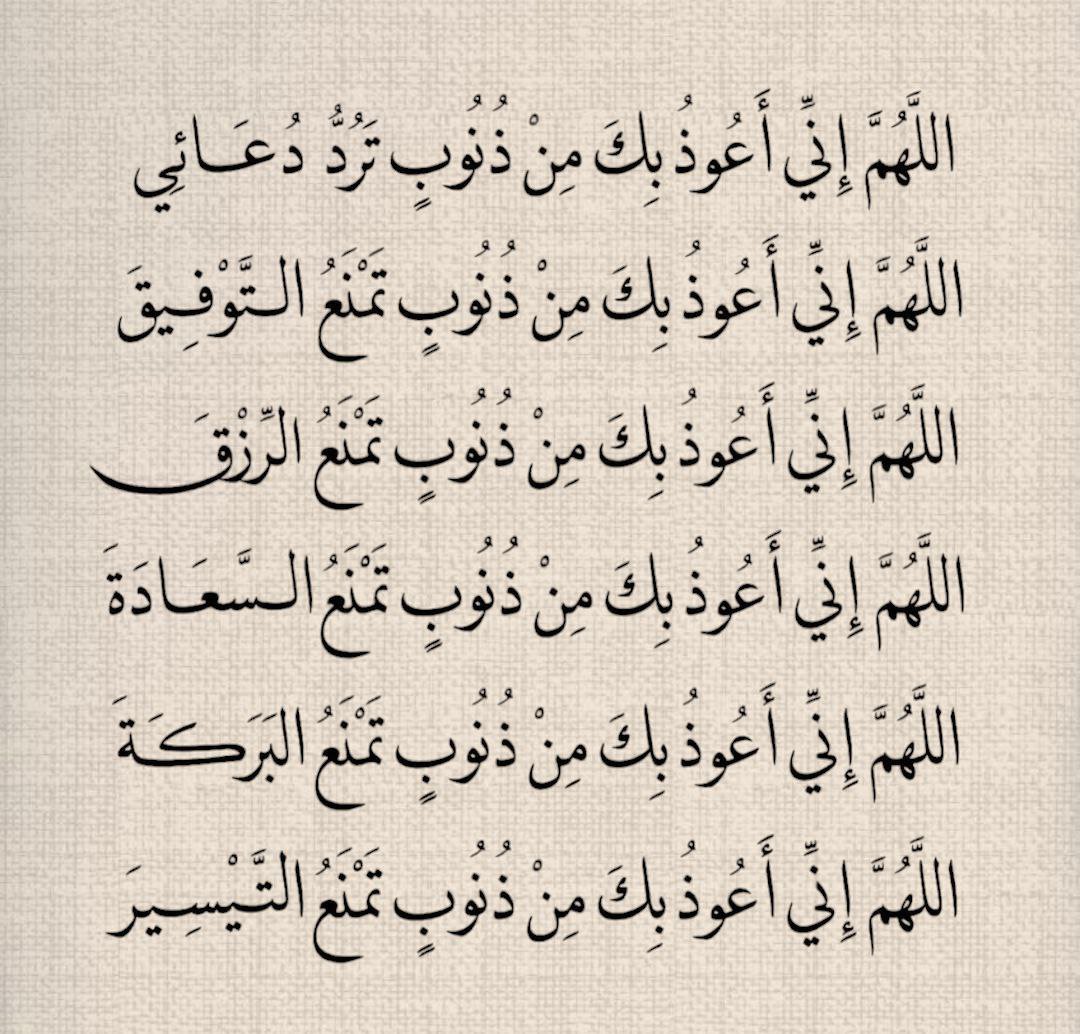 اللَّهُمَّ إِنِّي أَعُوذُ بِكَ مِنْ ذُنُوبٍ تَرُدُّ دُعَـائِي
اللَّهُمَّ إِنِّي أَعُوذُ بِكَ مِنْ ذُنُوبٍ تَمْنَعُ الـتَّوْفِـيقَ
اللَّهُمَّ إِنِّي أَعُوذُ بِكَ مِنْ ذُنُوبٍ تَمْنَعُ الرِّزْقَ
اللَّهُمَّ إِنِّي أَعُوذُ بِكَ مِنْ ذُنُوبٍ تَمْنَعُ الـسَّعَـادَةَ
اللَّهُمَّ إِنِّي أَعُوذُ بِكَ مِنْ ذُنُوبٍ تَمْنَعُ البَرَكَـةَ
اللَّهُمَّ إِنِّي أَعُوذُ بِكَ مِنْ ذُنُوبٍ تَمْنَعُ التَّـيْسِـيرَ